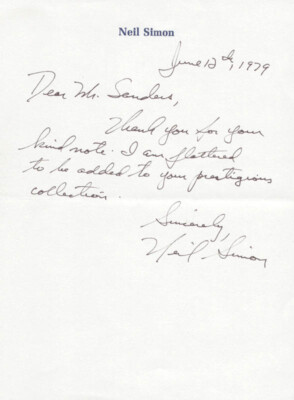 Neil Simon
June 12th, 1979
Dear Mr. Sanders,
Thank you for your
kind note. I am flattered
to be added to your prestigious
collection.
Sincerely,
Neil Simon